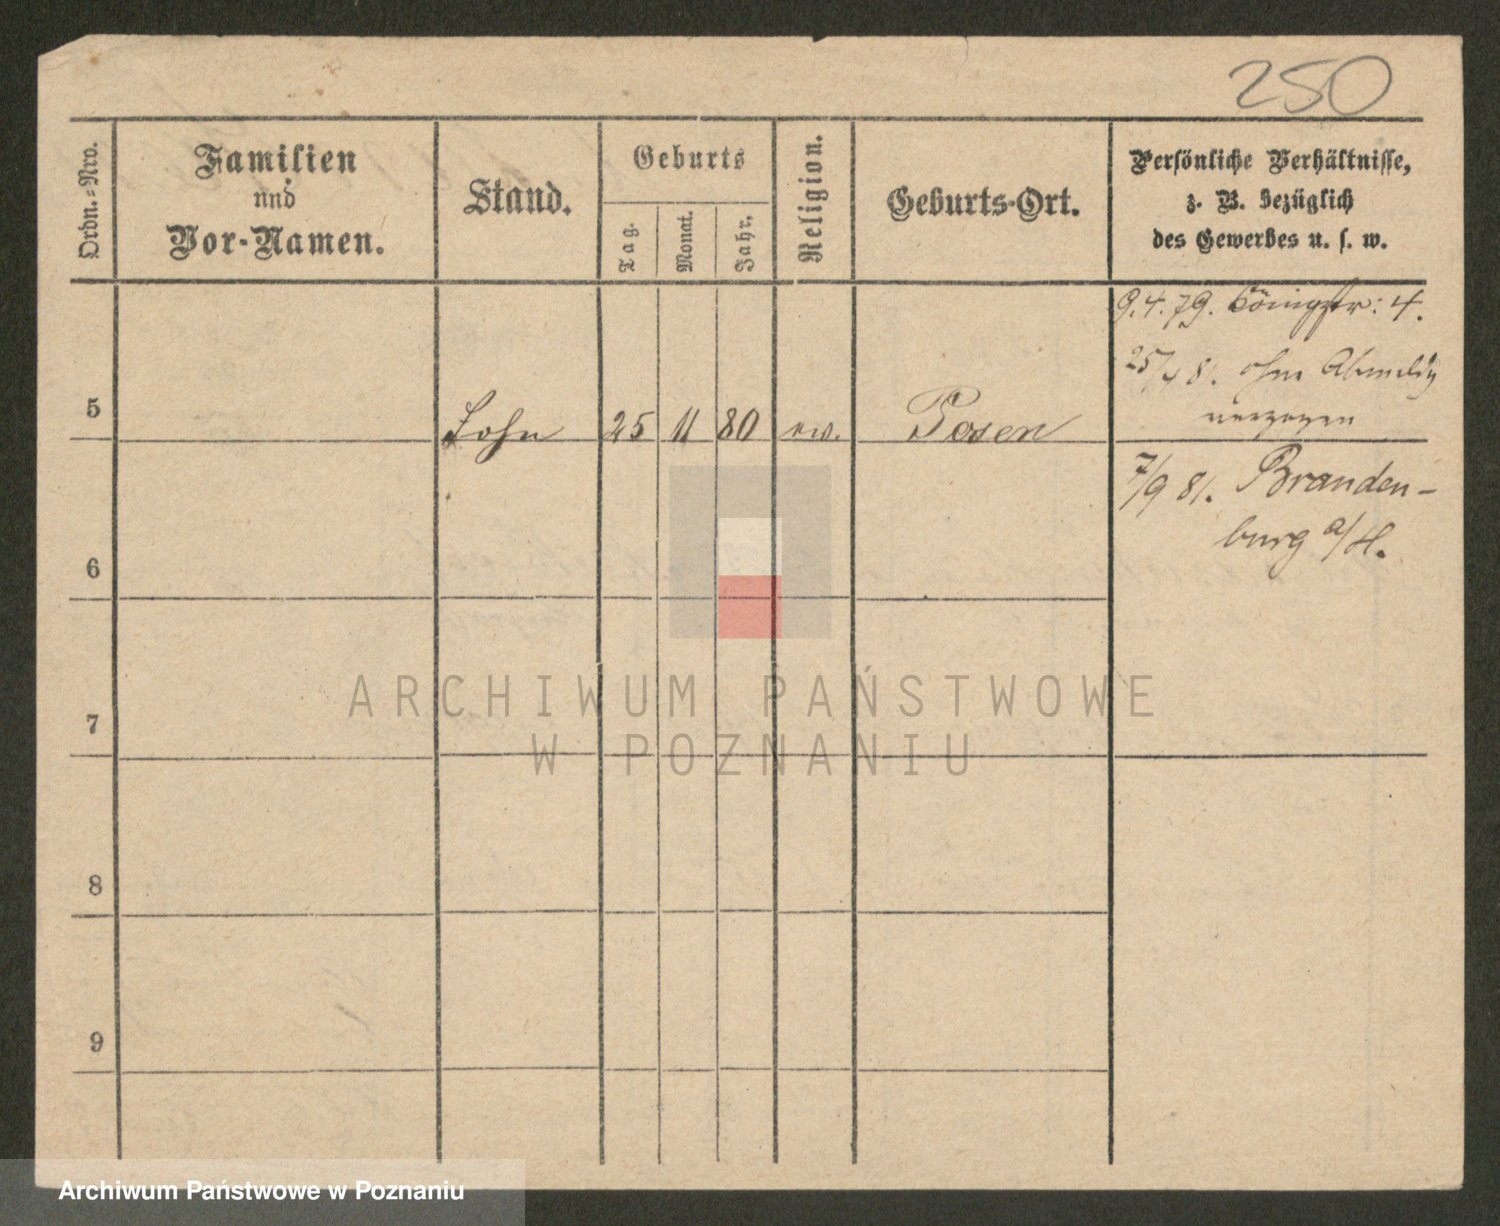 250
Ordn.-Nro.
Familien
und
Vor-Namen.
Stand.
Geburts
Tag.
Monat.
Jahr.
Religion.
Geburts-Ort.
Persönliche Verhältnisse,
z. B. bezüglich
des Gewerbes u. s. w.
9.4.79. Königstr: 4.
25/4 81. ohne Abmeldg
verzogen
5
Sohn 25 11 80 ev. Posen
7/9 81. Branden-
burg a/H.
6
7
8
9
ARCHIWUM PAŃSTWOWE
W POZNANIU
Archiwum Państwowe w Poznaniu